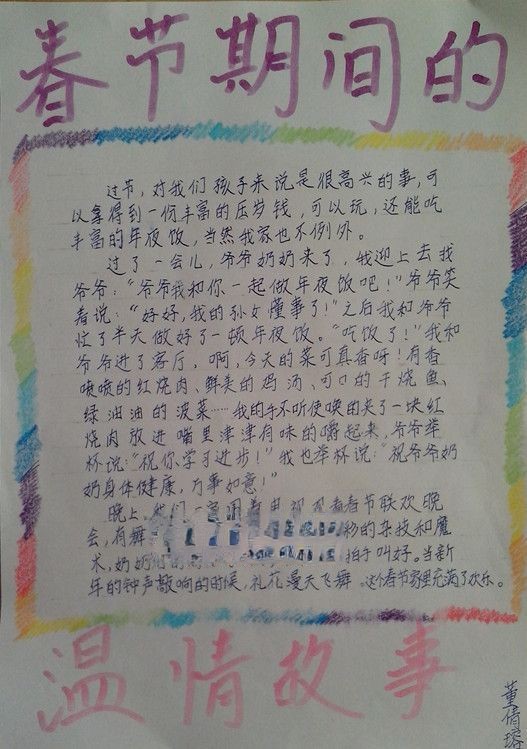 春节期间的
过节，对我们孩子来说是很高兴的事，可
以拿得到一份丰富的压岁钱，可以玩，还能吃
丰富的年夜饭，当然我家也不例外。
过了一会儿，爷爷奶奶来了，我迎上去找
爷爷：“爷爷我和你一起做年夜饭吧！”爷爷笑
着说：“好好，我的孙女懂事了！”之后我和爷爷
忙了半天做好了一顿年夜饭。“吃饭了！”我和
爷爷进了客厅，啊，今天的菜可真香呀！有香
喷喷的红烧肉、鲜美的鸡汤、可口的干烧鱼、
绿油油的菠菜……我的手不听使唤的夹了一块红
烧肉放进嘴里津津有味的嚼起来，爷爷举
杯说：“祝你学习进步！”我也举杯说：“祝爷爷奶
奶身体健康，万事如意！”
晚上，我们一家围着电视观看春节联欢晚
会，有舞 彩的杂技和魔
术，奶奶 拍手叫好。当新
年的钟声敲响的时候，礼花漫天飞舞。这个春节家里充满了欢乐。
温情故事
董倩瑢